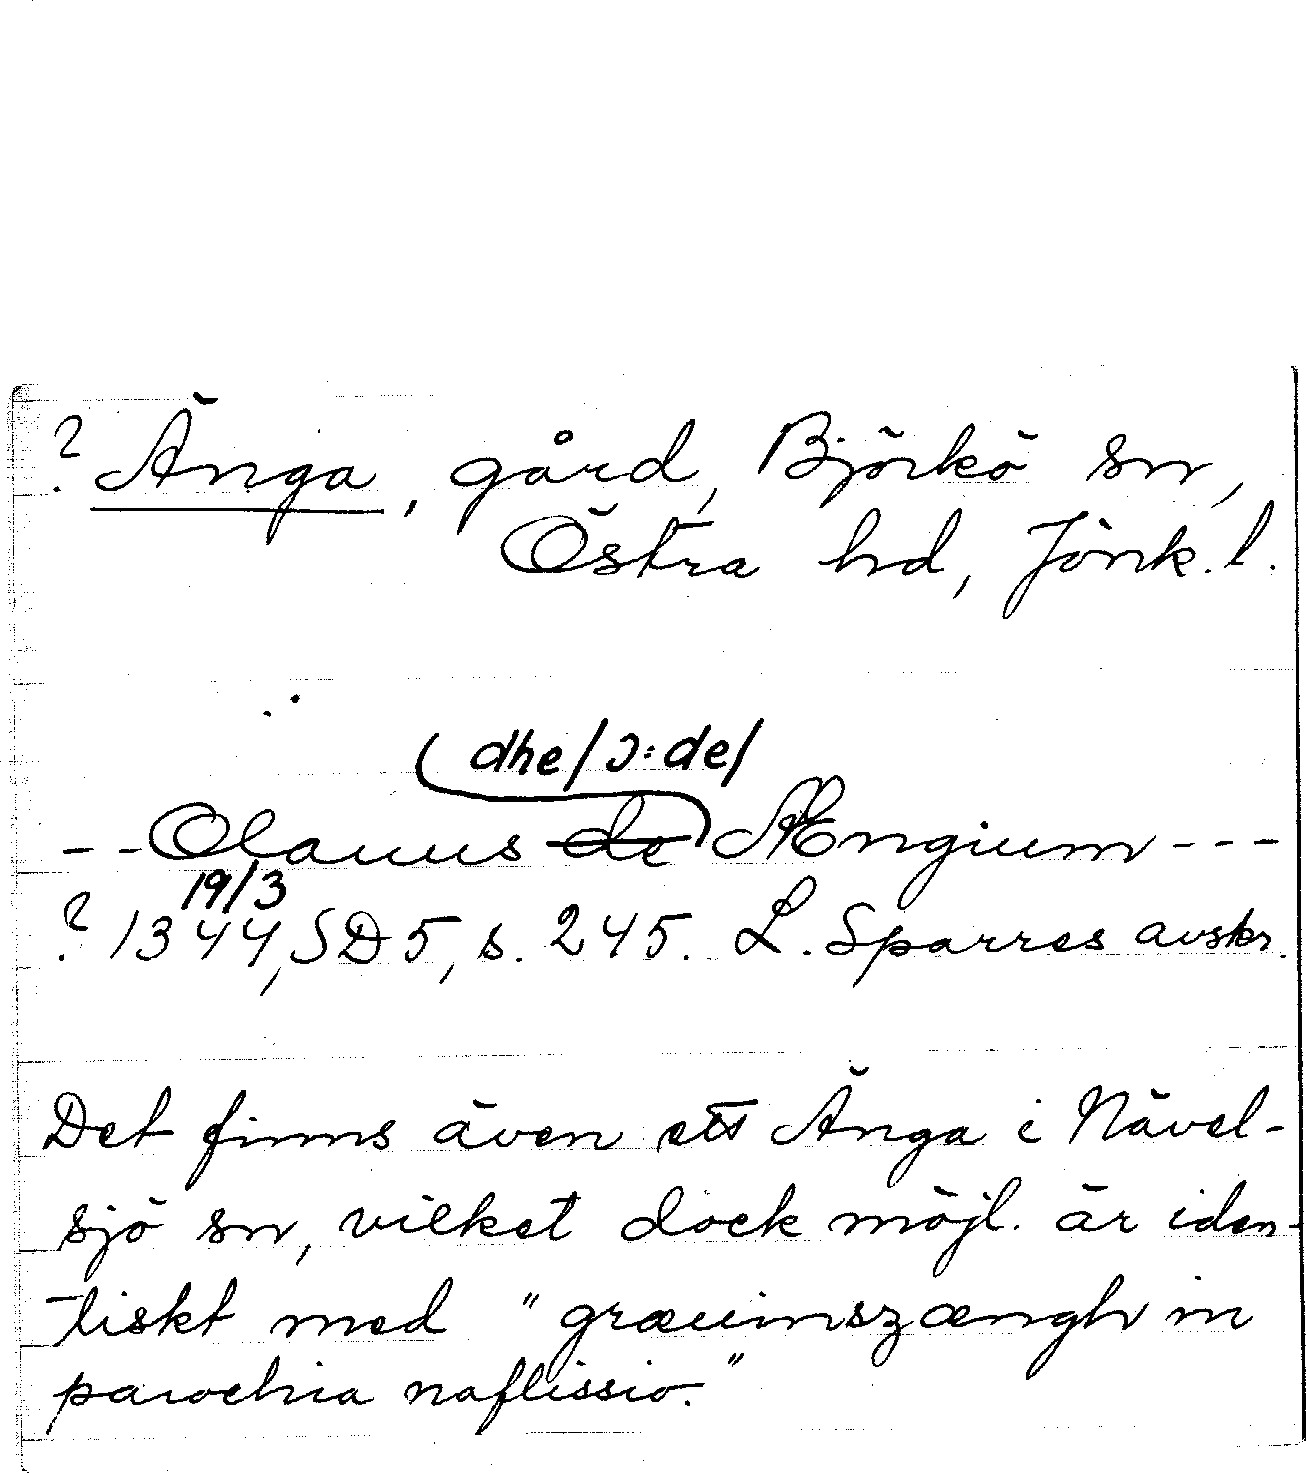 ? Änga, gård, Björkö sn,
Östra hd, Jönk. l.
dhe/ɔ: de/
--Olauus de Ængium---
19/3
? 1344, SD 5, s. 245. L. Sparres avskr.
Det finns även ett Änga i Nävel-
sjö sn, vilket dock möjl. är iden-
tiskt med "græuimszængh in
parochia naflissio."